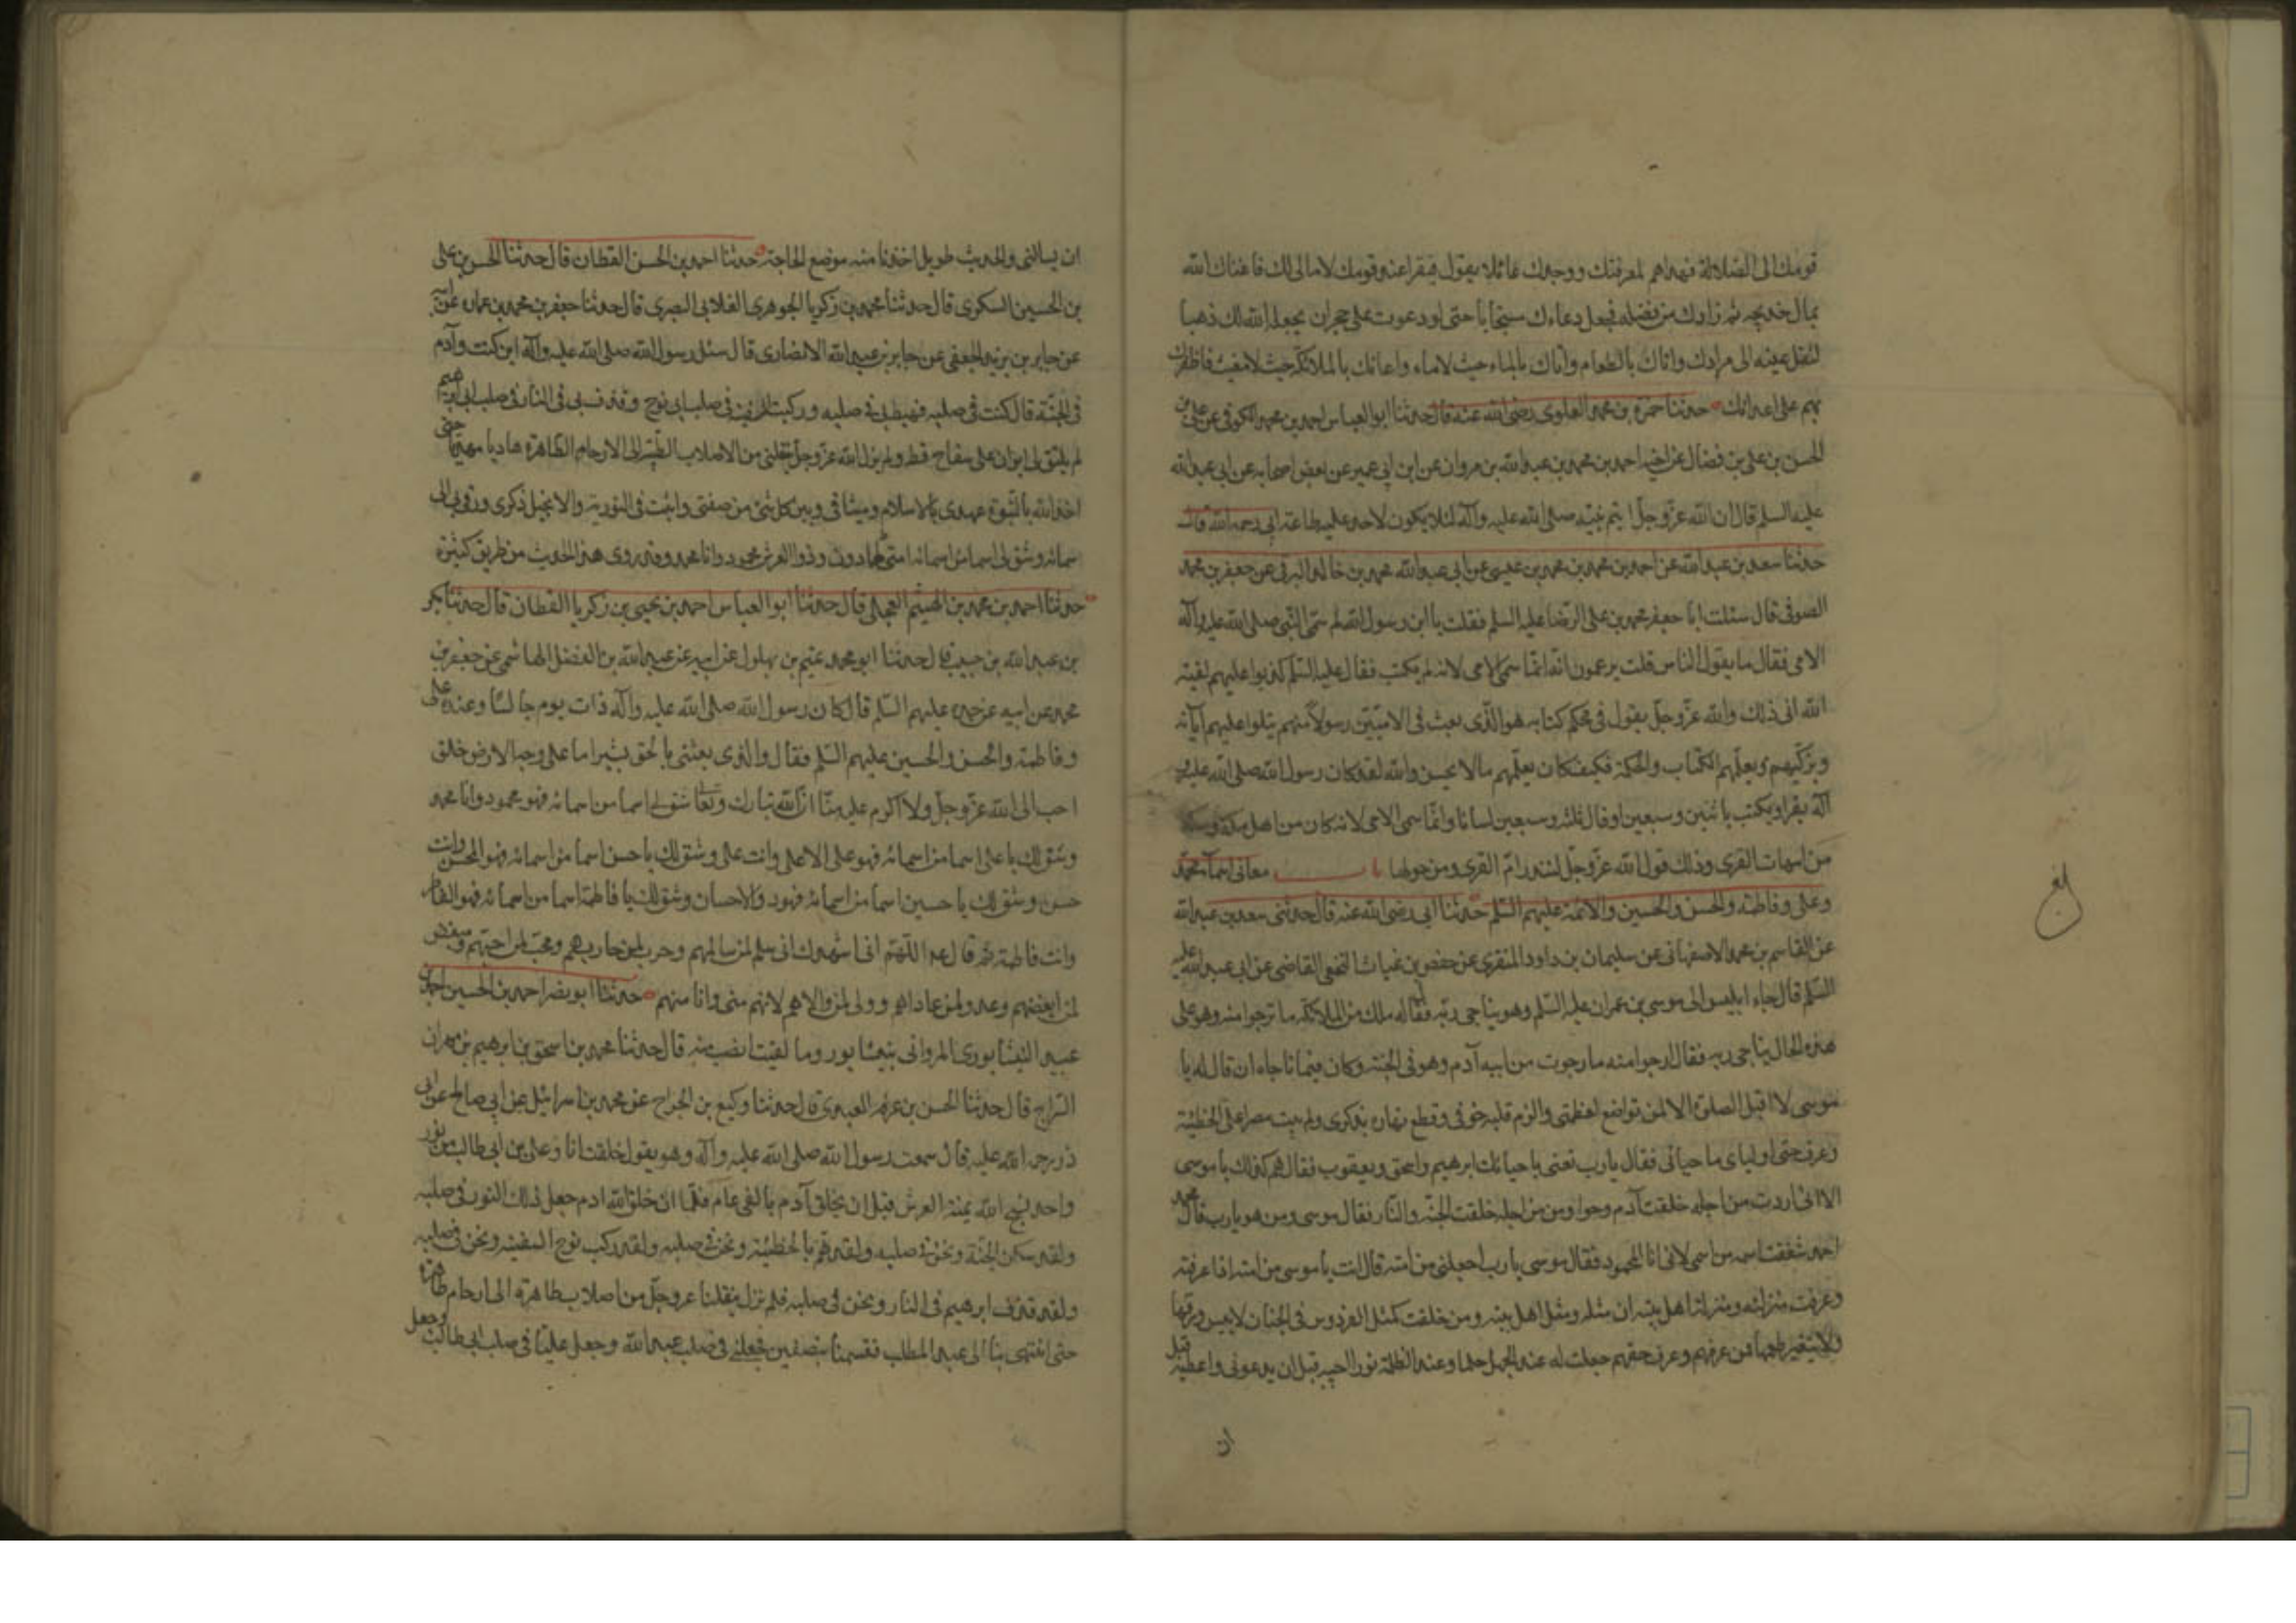 قومك الى الضلالة فهداهم لمعرفتك ووجدك عائلا يقول فقيرا عند قومك لا مال لك فاغناك الله
بمال خديجه ثم زادك من فضله فجعل دعاءك مستجابا حتى لو دعوت على حجر ان يجعله الله لك ذهبا
لنقل عينه الى مرادك واتاك بالطعام حيث لا طعام واتاك بالماء حيث لا ماء واعانك بالملائكة حيث لا مغيث فاظفرك
بهم على اعدائك حدثنا حمزة بن محمد العلوى رضى الله عنه قال حدثنا ابو العباس احمد بن محمد الكوفى عن على بن
الحسن بن على بن فضال عن اخيه احمد بن محمد بن عبد الله بن مروان عن ابن ابى عمير عن بعض اصحابه عن ابى عبد الله
عليه السلم قال ان الله عز وجل ايتم نبيه صلى الله عليه وآله لئلا يكون لاحد عليه طاعة ابى رحمه الله قال
حدثنا سعد بن عبد الله عن احمد بن محمد بن عيسى عن ابى عبد الله محمد بن خالد البرقى عن جعفر بن محمد
الصوفى قال سئلت ابا جعفر محمد بن على الرضا عليه السلم فقلت يا ابن رسول الله لم سمى النبى صلى الله عليه وآله
الامى فقال ما يقول الناس قلت يزعمون انه انما سمى الامى لانه لم يكتب فقال عليه السلم كذبوا عليهم لعنة
الله انى ذلك والله عز وجل يقول فى محكم كتابه هو الذى بعث فى الاميين رسولا منهم يتلوا عليهم آياته
ويزكيهم ويعلمهم الكتاب والحكمة فكيف كان يعلمهم ما لا يحسن والله لقد كان رسول الله صلى الله عليه و
آله يقرا ويكتب باثنين وسبعين او قال ثلثه وسبعين لسانا وانما سمى الامى لانه كان من اهل مكة ومكة
من امهات القرى وذلك قول الله عز وجل لتنذر ام القرى ومن حولها باب معانى اسماء محمد
وعلى وفاطمه والحسن والحسين والائمة عليهم السلم حدثنا ابى رضى الله عنه قال حدثنى سعد بن عبد الله
عن القاسم بن محمد الاصفهانى عن سليمان بن داود المنقرى عن حفص بن غياث النخعى القاضى عن ابى عبد الله عليه
السلم قال جاء ابليس الى موسى بن عمران عليه السلم وهو يناجى ربه فقال له ملك من الملائكه ما ترجوا منه وهو على
هذه الحال يناجى ربه فقال ارجوا منه ما رجوت من ابيه آدم وهو فى الجنة وكان فيما ناجاه ان قال له يا
موسى لا اقبل الصلوة الا لمن تواضع لعظمتى والزم قلبه خوفى وقطع نهاره بذكرى ولم يبت مصرا على الخطيئة
وعرف حق اوليائى واحبائى فقال يا رب تعنى باحبائك ابرهيم واسحق ويعقوب فقال هم كذلك يا موسى
الا انى اردت من اجله خلقت آدم وحوا ومن من اجله خلقت الجنة والنار فقال موسى ومن هو يا رب قال محمد
احمد شققت اسمه من اسمى لانى انا المحمود فقال موسى يا رب اجعلنى من امته قال انت يا موسى من امته اذا عرفته
وعرفت منزلته ومنزلة اهل بيته ان مثله ومثل اهل بيته ومن خلقت كمثل الفردوس فى الجنان لا ييبس ورقها
ولا يتغير طعمها فمن عرفهم وعرف حقهم جعلت له عند الجهل حلما وعند الظلمة نورا اجيبه قبل ان يدعونى واعطيه قبل
ان
ان يسالنى والحديث طويل اخذنا منه موضع الحاجة حدثنا احمد بن الحسن القطان قال حدثنا الحسن بن على
بن الحسين السكرى قال حدثنا محمد بن زكريا الجوهرى الغلابى البصرى قال حدثنا جعفر بن محمد بن عماره عن ابيه
عن جابر بن يزيد الجعفى عن جابر بن عبد الله الانصارى قال سئل رسول الله صلى الله عليه وآله اين كنت وآدم
فى الجنة قال كنت فى صلبه فهبط بى فى صلبه وركبت السفينة فى صلب ابى نوح وقذف بى فى النار فى صلب ابى ابرهيم
لم يلتق لى ابوان على سفاح قط ولم يزل الله عز وجل ينقلنى من الاصلاب الطيبة الى الارحام الطاهرة هاديا مهديا حتى
اخذ الله بالنبوة عهدى وبالاسلام وميثاقى وبين كل شئ من صفتى واثبت فى التورية والانجيل ذكرى ورقى بى الى
سمائه وشق لى اسما من اسمائه امتى الحمادون وذو العرش محمود وانا محمد وقد روى هذا الحديث من طرق كثيرة
حدثنا احمد بن محمد بن الهيثم العجلى قال حدثنا ابو العباس احمد بن يحيى بن زكريا القطان قال حدثنا بكر
بن عبد الله بن حبيب قال حدثنا ابو محمد تميم بن بهلول عن ابيه عن عبد الله بن الفضل الهاشمى عن جعفر بن
محمد عن ابيه عن جده عليهم السلم قال كان رسول الله صلى الله عليه وآله ذات يوم جالسا وعنده على
وفاطمة والحسن والحسين عليهم السلم فقال والذى بعثنى بالحق بشيرا ما على وجه الارض خلق
احب الى الله عز وجل ولا اكرم عليه منا ان الله تبارك وتعالى شق لى اسما من اسمائه فهو محمود وانا محمد
وشق لك يا على اسما من اسمائه فهو على الاعلى وانت على وشق لك يا حسن اسما من اسمائه فهو المحسن وانت
حسن وشق لك يا حسين اسما من اسمائه فهو ذو الاحسان وشق لك يا فاطمة اسما من اسمائه فهو الفاطر
وانت فاطمة ثم قال اللهم انى اشهدك انى سلم لمن سالمهم وحرب لمن حاربهم ومحب لمن احبهم ومبغض
لمن ابغضهم وعدو لمن عاداهم وولى لمن والاهم لانهم منى وانا منهم حدثنا ابو نصر احمد بن الحسين بن احمد بن
عبيد النيشابورى المروانى بنيشابور وما لقيت انصب منه قال حدثنا محمد بن اسحق بن ابرهيم بن مهران
السراج قال حدثنا الحسن بن عرفه العبدى قال حدثنا وكيع بن الجراح عن محمد بن اسرائيل عن ابى صالح عن ابى
ذر رحمة الله عليه قال سمعت رسول الله صلى الله عليه وآله وهو يقول خلقت انا وعلى بن ابى طالب من نور
واحد نسبح الله يمنة العرش قبل ان يخلق آدم بالفى عام فلما ان خلق الله ادم جعل ذلك النور فى صلبه
ولقد سكن الجنة ونحن فى صلبه ولقد هم بالخطيئة ونحن فى صلبه ولقد ركب نوح السفينه ونحن فى صلبه
ولقد قذف ابرهيم فى النار ونحن فى صلبه فلم نزل ينقلنا عز وجل من اصلاب طاهرة الى ارحام طاهرة
حتى انتهى بنا الى عبد المطلب فقسمنا بنصفين فجعلنى فى صلب عبد الله وجعل عليا فى صلب ابى طالب وجعل